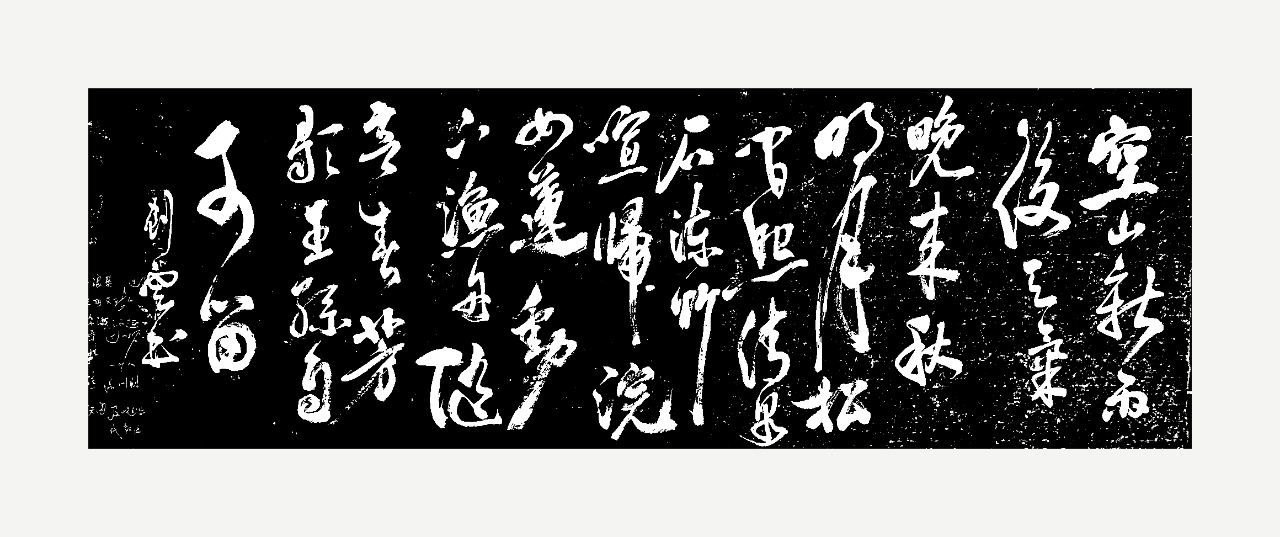 空山新雨
後天氣
晚來秋
明月松
間照清泉
石流竹
喧歸浣
女蓮動
下漁舟隨
意春芳
歇王孫自
可留
劉雲書